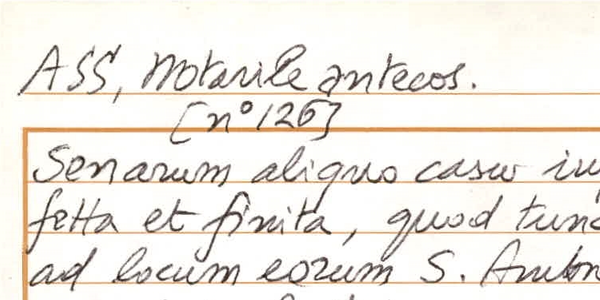 ASS, Notarile antecos.
[n° 126]
Senarum aliquo casu
fetta et finita, quod tunc
ad locum eorum S.